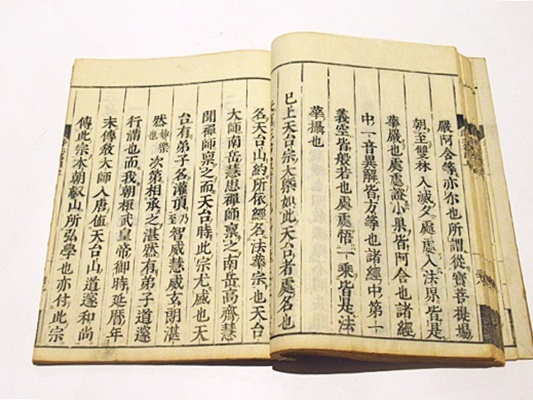 嚴阿含等亦尓也所謂從寂菩提場
朝至雙林入滅夕處處入法界皆是
華嚴也處處證小果皆阿含也諸經
中一音異解皆方等也諸經中第一
義空皆般若也處處悟一乘皆是法
華攝也
已上天台宗大槩如此天台者處名也
名天台山約所依經名法華宗也天台
大師南岳慧思禪師稟之南岳高齊慧
聞禪師稟之而天台時此宗尤盛也天
台有弟子名灌頂乃至智威慧威玄朗湛
然妙樂也次第相承之湛然有弟子道邃
行滿也而我朝桓武皇帝御時延曆年
末傳教大師入唐值天台山道邃和尚
傳此宗本朝叡山所弘學也亦付此宗